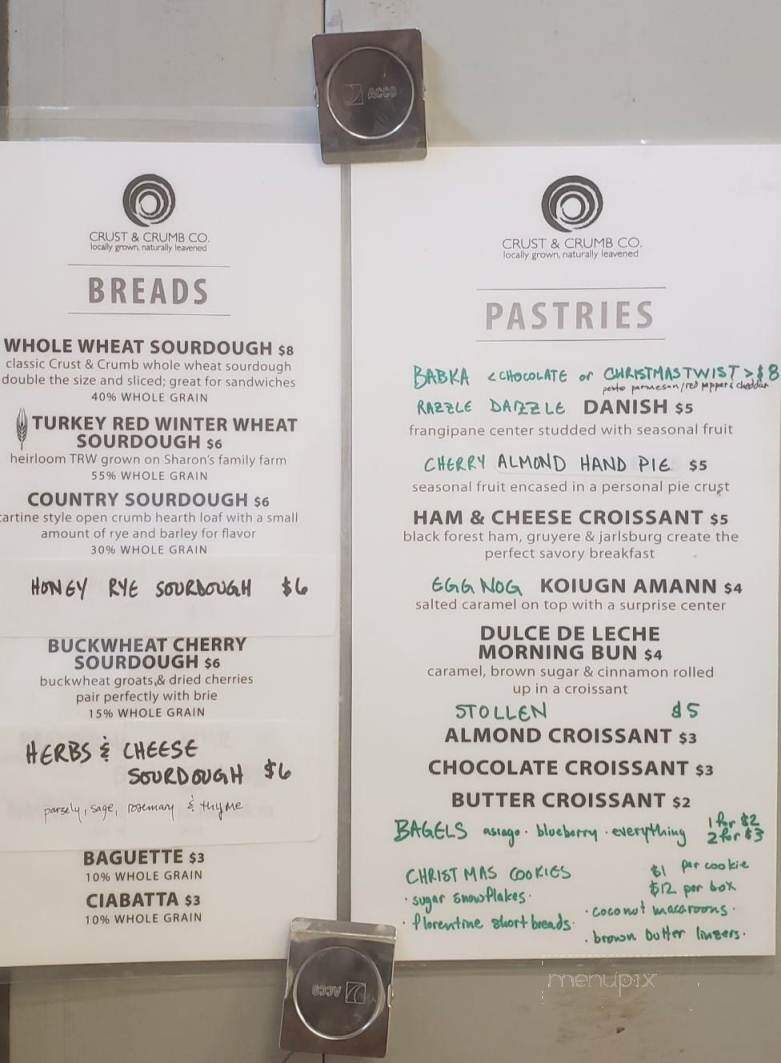 ACCO
CRUST & CRUMB CO.
locally grown, naturally leavened
BREADS
WHOLE WHEAT SOURDOUGH $8
classic Crust & Crumb whole wheat sourdough
double the size and sliced; great for sandwiches
40% WHOLE GRAIN
TURKEY RED WINTER WHEAT
SOURDOUGH $6
heirloom TRW grown on Sharon's family farm
55% WHOLE GRAIN
COUNTRY SOURDOUGH $6
artine style open crumb hearth loaf with a small
amount of rye and barley for flavor
30% WHOLE GRAIN
HONEY RYE SOURDOUGH $6
BUCKWHEAT CHERRY
SOURDOUGH $6
buckwheat groats,& dried cherries
pair perfectly with brie
15% WHOLE GRAIN
HERBS & CHEESE
SOURDOUGH $6
parsely, sage, rosemary & thyme
BAGUETTE $3
10% WHOLE GRAIN
CIABATTA $3
10% WHOLE GRAIN
CRUST & CRUMB CO.
locally grown, naturally leavened
PASTRIES
BABKA <CHOCOLATE or CHRISTMAS TWIST> $8
pesto parmesan/red pepper & cheddar
RAZZLE DAZZLE DANISH $5
frangipane center studded with seasonal fruit
CHERRY ALMOND HAND PIE $5
seasonal fruit encased in a personal pie crust
HAM & CHEESE CROISSANT $5
black forest ham, gruyere & jarlsburg create the
perfect savory breakfast
EGG NOG KOIUGN AMANN $4
salted caramel on top with a surprise center
DULCE DE LECHE
MORNING BUN $4
caramel, brown sugar & cinnamon rolled
up in a croissant
STOLLEN $5
ALMOND CROISSANT $3
CHOCOLATE CROISSANT $3
BUTTER CROISSANT $2
BAGELS asiago · blueberry · everything 1 for $2
2 for $3
CHRISTMAS COOKIES $1 per cookie
$12 per box
· sugar snowflakes ·
· florentine shortbreads ·
· coconut macaroons ·
· brown butter linzers ·
menupix
ACCO